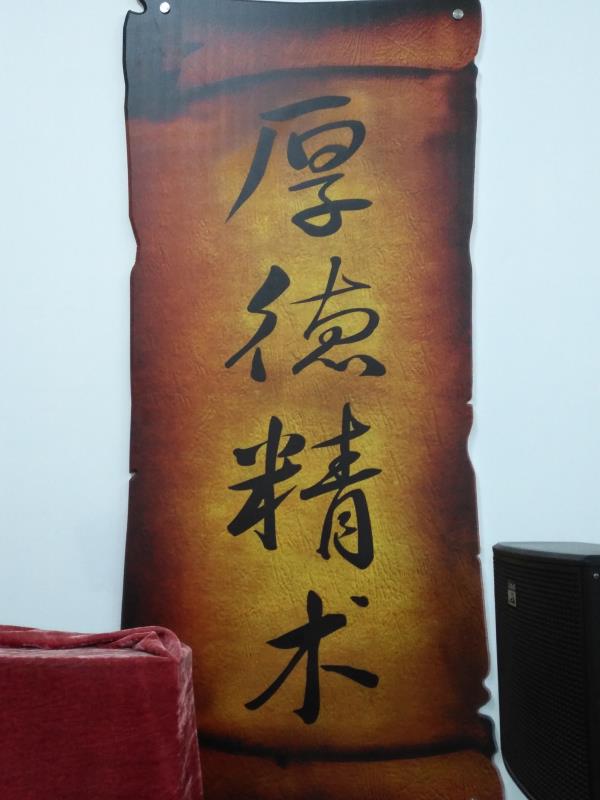 厚德精术